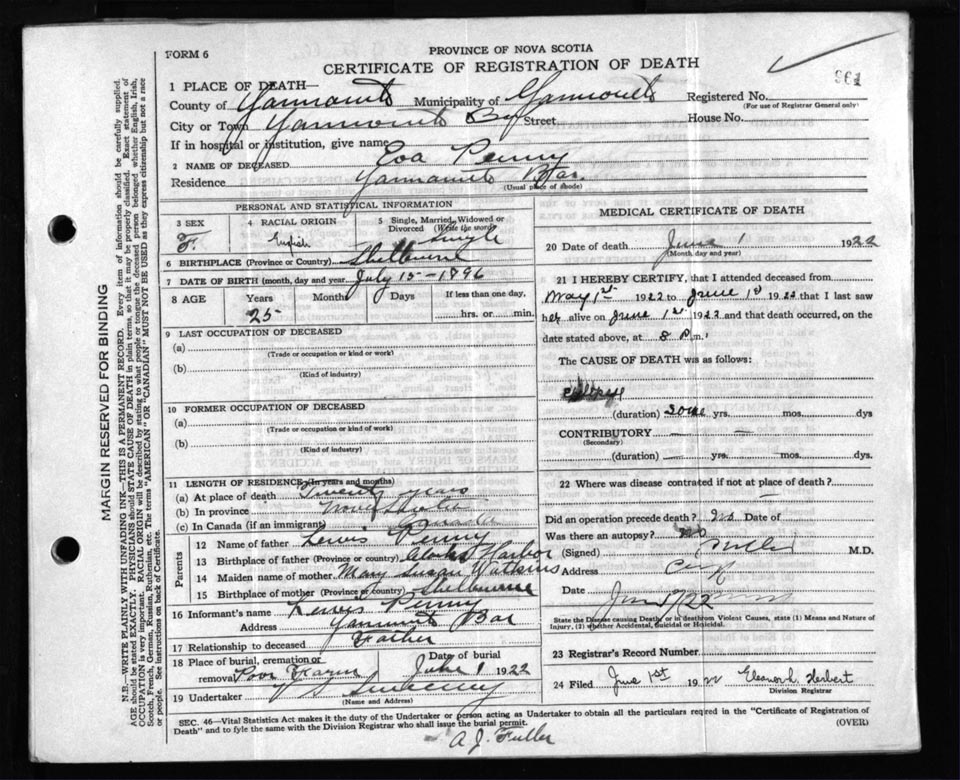 FORM 6
PROVINCE OF NOVA SCOTIA
CERTIFICATE OF REGISTRATION OF DEATH
961
1 PLACE OF DEATH—
County of Yarmouth Municipality of Yarmouth Registered No.
(For use of Registrar General only)
City or Town Yarmouth Street House No.
If in hospital or institution, give name
2 NAME OF DECEASED Eva Penny
Residence Yarmouth Bar
(Usual place of abode)
PERSONAL AND STATISTICAL INFORMATION
3 SEX 4 RACIAL ORIGIN 5 Single, Married, Widowed or Divorced (Write the word)
F English Single
6 BIRTHPLACE (Province or Country) Shelburne
7 DATE OF BIRTH (month, day and year) July 15-1896
8 AGE Years Months Days If less than one day.
25 hrs. or min.
9 LAST OCCUPATION OF DECEASED
(a)
(Trade or occupation or kind or work)
(b)
(Kind of industry)
10 FORMER OCCUPATION OF DECEASED
(a)
(Trade or occupation or kind of work)
(b)
(Kind of industry)
11 LENGTH OF RESIDENCE (In years and months)
(a) At place of death Twenty years
(b) In province Nova Scotia
(c) In Canada (if an immigrant) Canada
Parents
12 Name of father Lewis Penny
13 Birthplace of father (Province or country) Clarks Harbor
14 Maiden name of mother Mary Susan Watkins
15 Birthplace of mother (Province or country) Shelburne
16 Informant's name Lewis Penny
Address Yarmouth Bar
17 Relationship to deceased Father
18 Place of burial, cremation or removal Date of burial June 1 1922
19 Undertaker V S Sweeney
(Name and Address)
MEDICAL CERTIFICATE OF DEATH
20 Date of death June 1 1922
(Month, day and year)
21 I HEREBY CERTIFY, that I attended deceased from
May 1st 1922 to June 1st 1922 that I last saw
her alive on June 1st 1922 and that death occurred, on the
date stated above, at 8 P.m.
The CAUSE OF DEATH was as follows:
(duration) some yrs. mos. dys
CONTRIBUTORY — —
(Secondary)
(duration) — yrs. — mos. dys.
22 Where was disease contracted if not at place of death?
—
Did an operation precede death? No Date of
Was there an autopsy? No
(Signed) M.D.
Address
Date June 1/22
State the Disease causing Death, or in deaths from Violent Causes, state (1) Means and Nature of Injury, (2) whether Accidental, Suicidal or Homicidal.
23 Registrar's Record Number
24 Filed June 1st 1922 Eleanor L Herbert
Division Registrar
SEC. 46—Vital Statistics Act makes it the duty of the Undertaker or person acting as Undertaker to obtain all the particulars required in the "Certificate of Registration of
Death" and to fyle the same with the Division Registrar who shall issue the burial permit. (OVER)
A J. Fuller
MARGIN RESERVED FOR BINDING
N.B.—WRITE PLAINLY WITH UNFADING INK—THIS IS A PERMANENT RECORD. Every item of information should be carefully supplied.
AGE should be stated EXACTLY. PHYSICIANS should STATE CAUSE OF DEATH in plain terms, so that it may be properly classified. Exact statement of
OCCUPATION is very important. RACIAL ORIGIN will be described by stating to what people or tongue the deceased person belonged whether English, Irish,
Scotch, French, German, Russian, Ruthenian, etc. The terms "AMERICAN" OR "CANADIAN" MUST NOT BE USED as they express citizenship but not a race
or people. See instructions on back of Certificate.